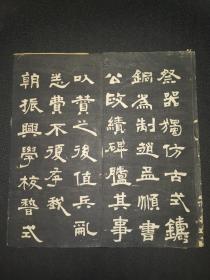 祭器獨仿古式鑄
銅為制趙孟頫書
公政績碑臚其事
以贊之後值兵亂
悉費不復存我
朝振興學校式